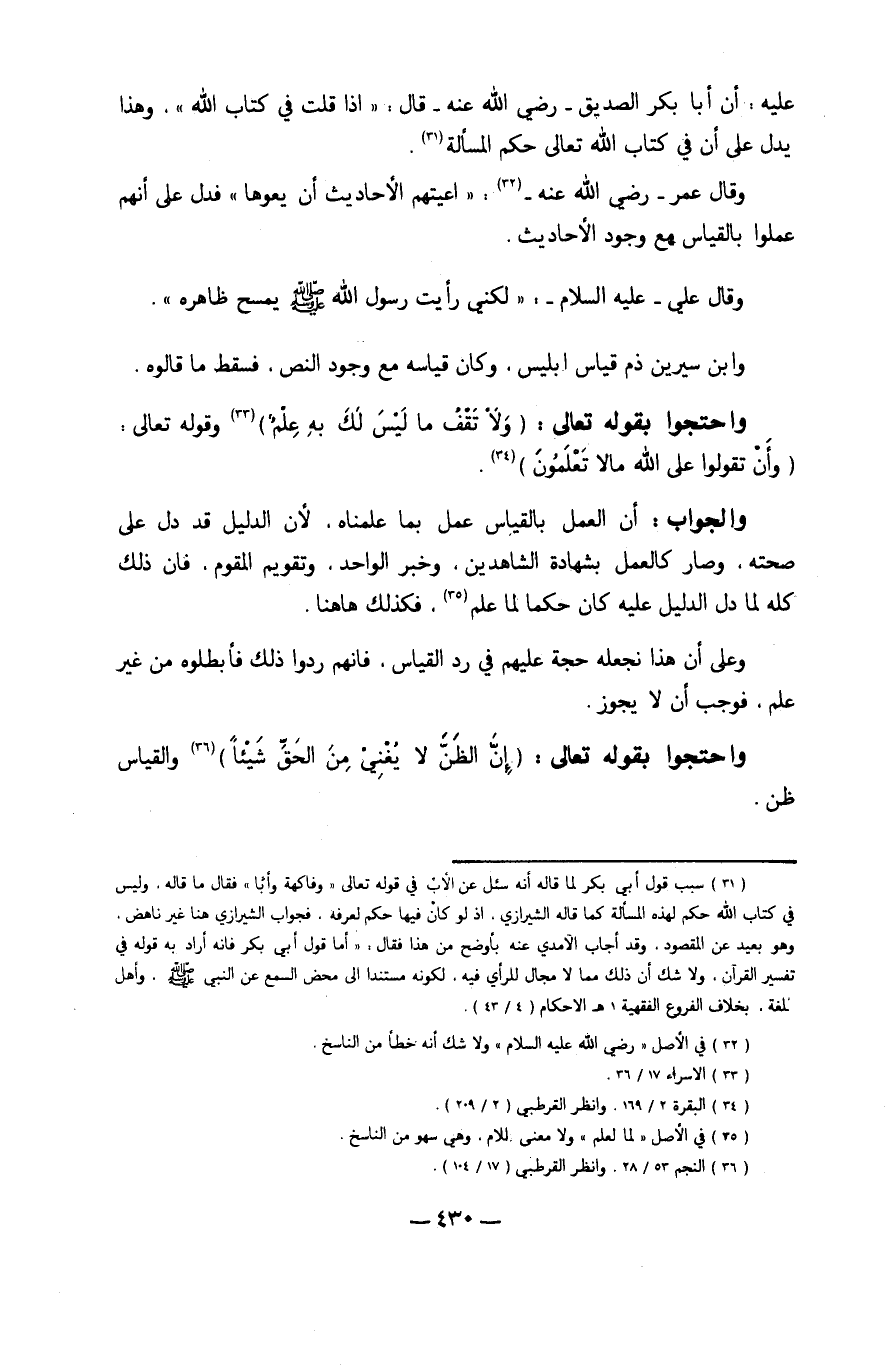 عليه : أن أبا بكر الصديق ـ رضي الله عنه ـ قال : « اذا قلت في كتاب الله » ، وهذا
يدل على أن في كتاب الله تعالى حكم المسألة (٣١) .
وقال عمر ـ رضي الله عنه ـ (٣٢) : « اعيتهم الأحاديث أن يعوها » فدل على أنهم
عملوا بالقياس مع وجود الأحاديث .
وقال علي ـ عليه السلام ـ : « لكني رأيت رسول الله ﷺ يمسح ظاهره » .
وابن سيرين ذم قياس ابليس ، وكان قياسه مع وجود النص ، فسقط ما قالوه .
واحتجوا بقوله تعالى : ( وَلَاْ تَقْفُ ما لَيْسَ لَكَ بهِ عِلْمٌ ) (٣٣) وقوله تعالى :
( وأَنْ تقولوا على الله مالا تَعْلَمُونَ ) (٣٤) .
والجواب : أن العمل بالقياس عمل بما علمناه ، لأن الدليل قد دل على
صحته ، وصار كالعمل بشهادة الشاهدين ، وخبر الواحد ، وتقويم المقوم ، فان ذلك
كله لما دل الدليل عليه كان حكما لما علم (٣٥) ، فكذلك هاهنا .
وعلى أن هذا نجعله حجة عليهم في رد القياس ، فانهم ردوا ذلك فأبطلوه من غير
علم ، فوجب أن لا يجوز .
واحتجوا بقوله تعالى : ( إِنَّ الظَنَّ لا يُغْنِيْ مِنَ الحَقِّ شَيْئاً ) (٣٦) والقياس
ظن .
( ٣١ ) سبب قول أبي بكر لما قاله أنه سئل عن الأبّ في قوله تعالى « وفاكهة وأبّا » فقال ما قاله ، وليس
في كتاب الله حكم لهذه المسألة كما قاله الشيرازي ، اذ لو كان فيها حكم لعرفه ، فجواب الشيرازي هنا غير ناهض ،
وهو بعيد عن المقصود ، وقد أجاب الآمدي عنه بأوضح من هذا فقال : « أما قول أبي بكر فانه أراد به قوله في
تفسير القرآن ، ولا شك أن ذلك مما لا مجال للرأي فيه ، لكونه مستندا الى محض السمع عن النبي ﷺ ، وأهل
للغة ، بخلاف الفروع الفقهية ١ هـ الاحكام ( ٤ / ٤٣ ) .
( ٣٢ ) في الأصل « رضي الله عليه السلام » ولا شك أنه خطأ من الناسخ .
( ٣٣ ) الاسراء ١٧ / ٣٦ .
( ٣٤ ) البقرة ٢ / ١٦٩ ، وانظر القرطبي ( ٢ / ٢٠٩ ) .
( ٣٥ ) في الأصل « لما لعلم » ولا معنى للام ، وهي سهو من الناسخ .
( ٣٦ ) النجم ٥٣ / ٢٨ ، وانظر القرطبي ( ١٧ / ١٠٤ ) .
— ٤٣٠ —